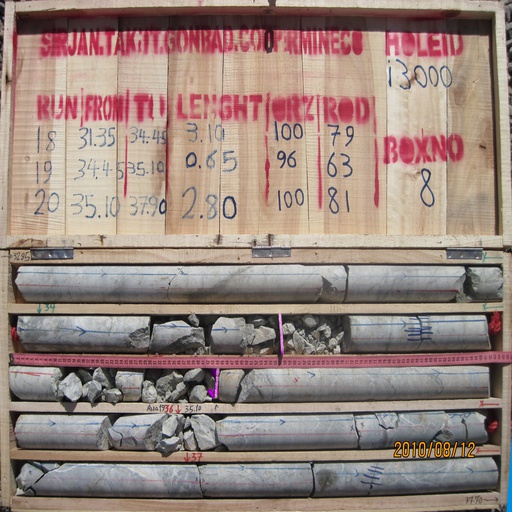 SIRJAN.TAK.IT.GONBAD.CO PRMINECO HOLEID
i3000
RUN FROM TO LENGHT ORZ ROD
18 31.35 34.45 3.10 100 79
19 34.45 35.10 0.65 96 63
20 35.10 37.90 2.80 100 81
BOXNO
8
↓34
36 ↓ 35.10
↓37
2010/08/12
37.90